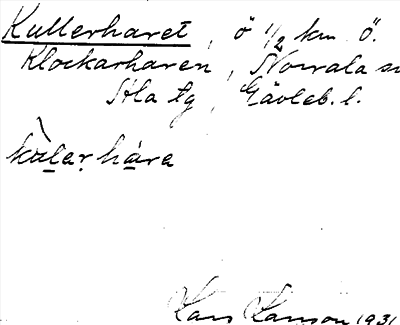 Kullerharet, ö 1/2 km ö.
Klockarharen, Norrala sn
Hla tg, Gävleb. l.
kùlạr hára
Lars Hanson 1931